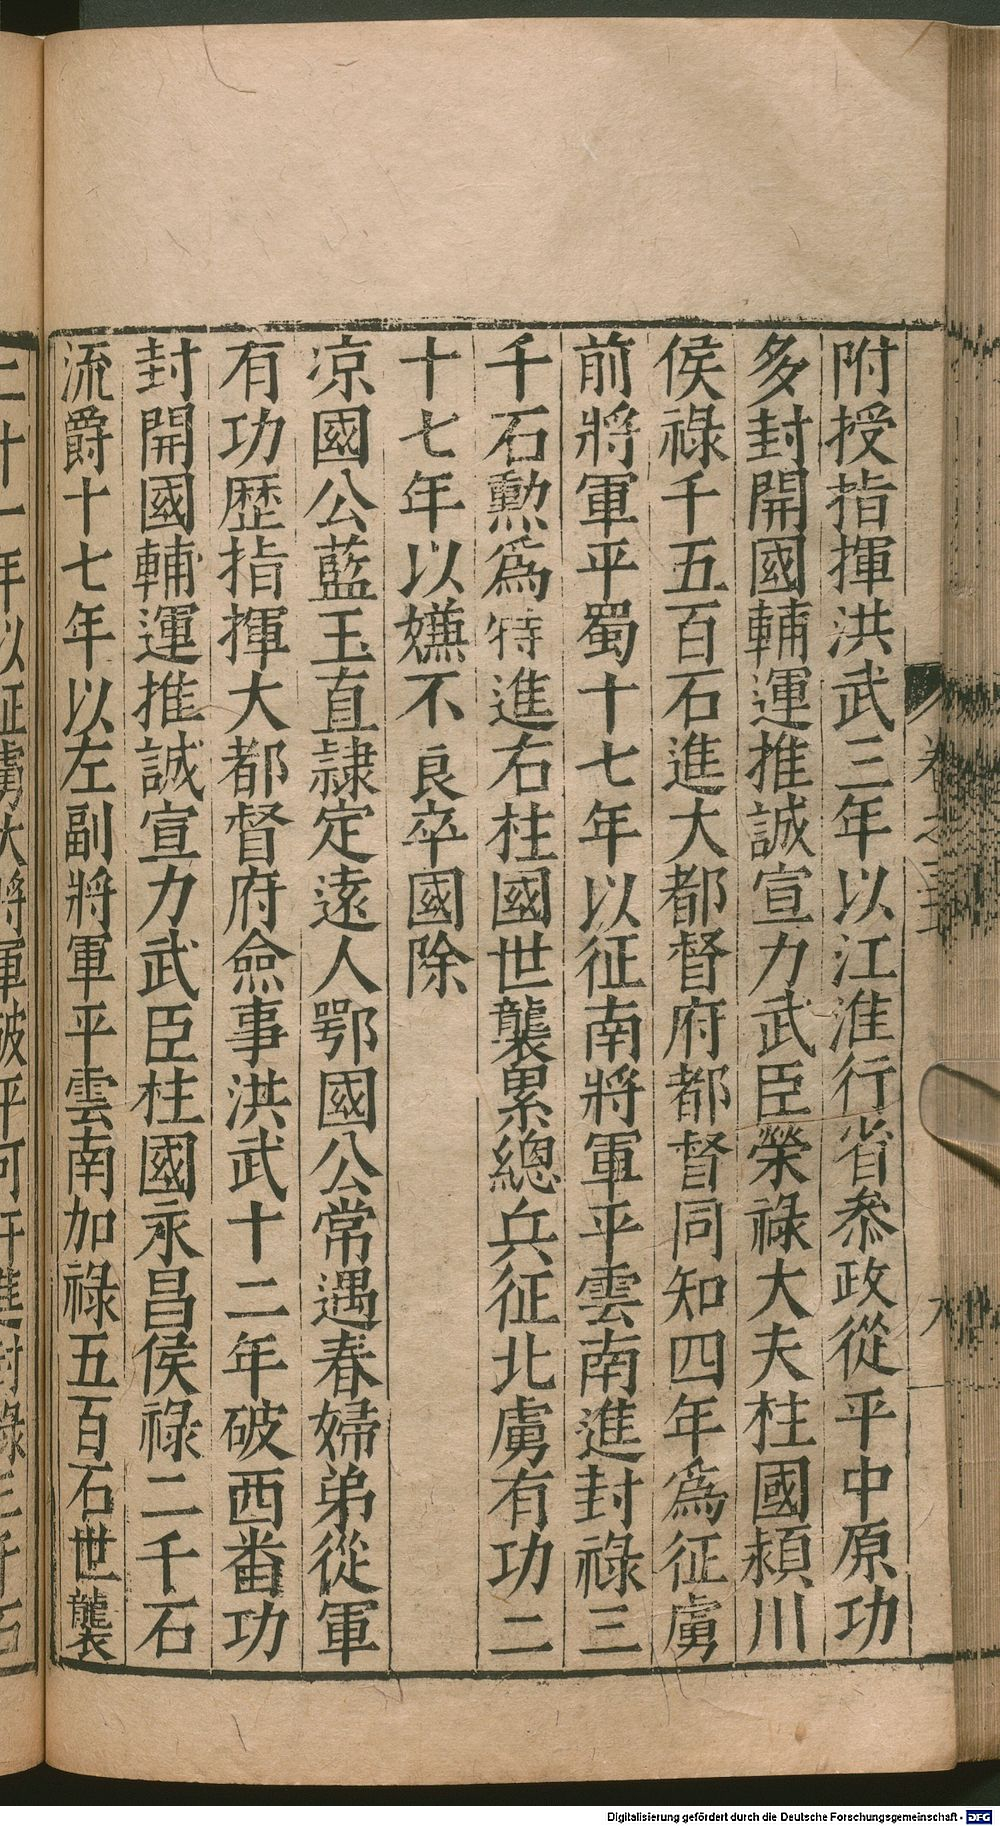 附授指揮洪武三年以江淮行省叅政從平中原功
多封開國輔運推誠宣力武臣榮祿大夫柱國潁川
侯祿千五百石進大都督府都督同知四年爲征虜
前將軍平蜀十七年以征南將軍平雲南進封祿三
千石勲爲特進右柱國世襲累總兵征北虜有功二
十七年以嫌不良卒國除
凉國公藍玉直隷定遠人鄂國公常遇春婦弟從軍
有功歴指揮大都督府僉事洪武十二年破西番功
封開國輔運推誠宣力武臣柱國永昌侯祿二千石
流爵十七年以左副將軍平雲南加祿五百石世襲
卷之三
Digitalisierung gefördert durch die Deutsche Forschungsgemeinschaft - DFG